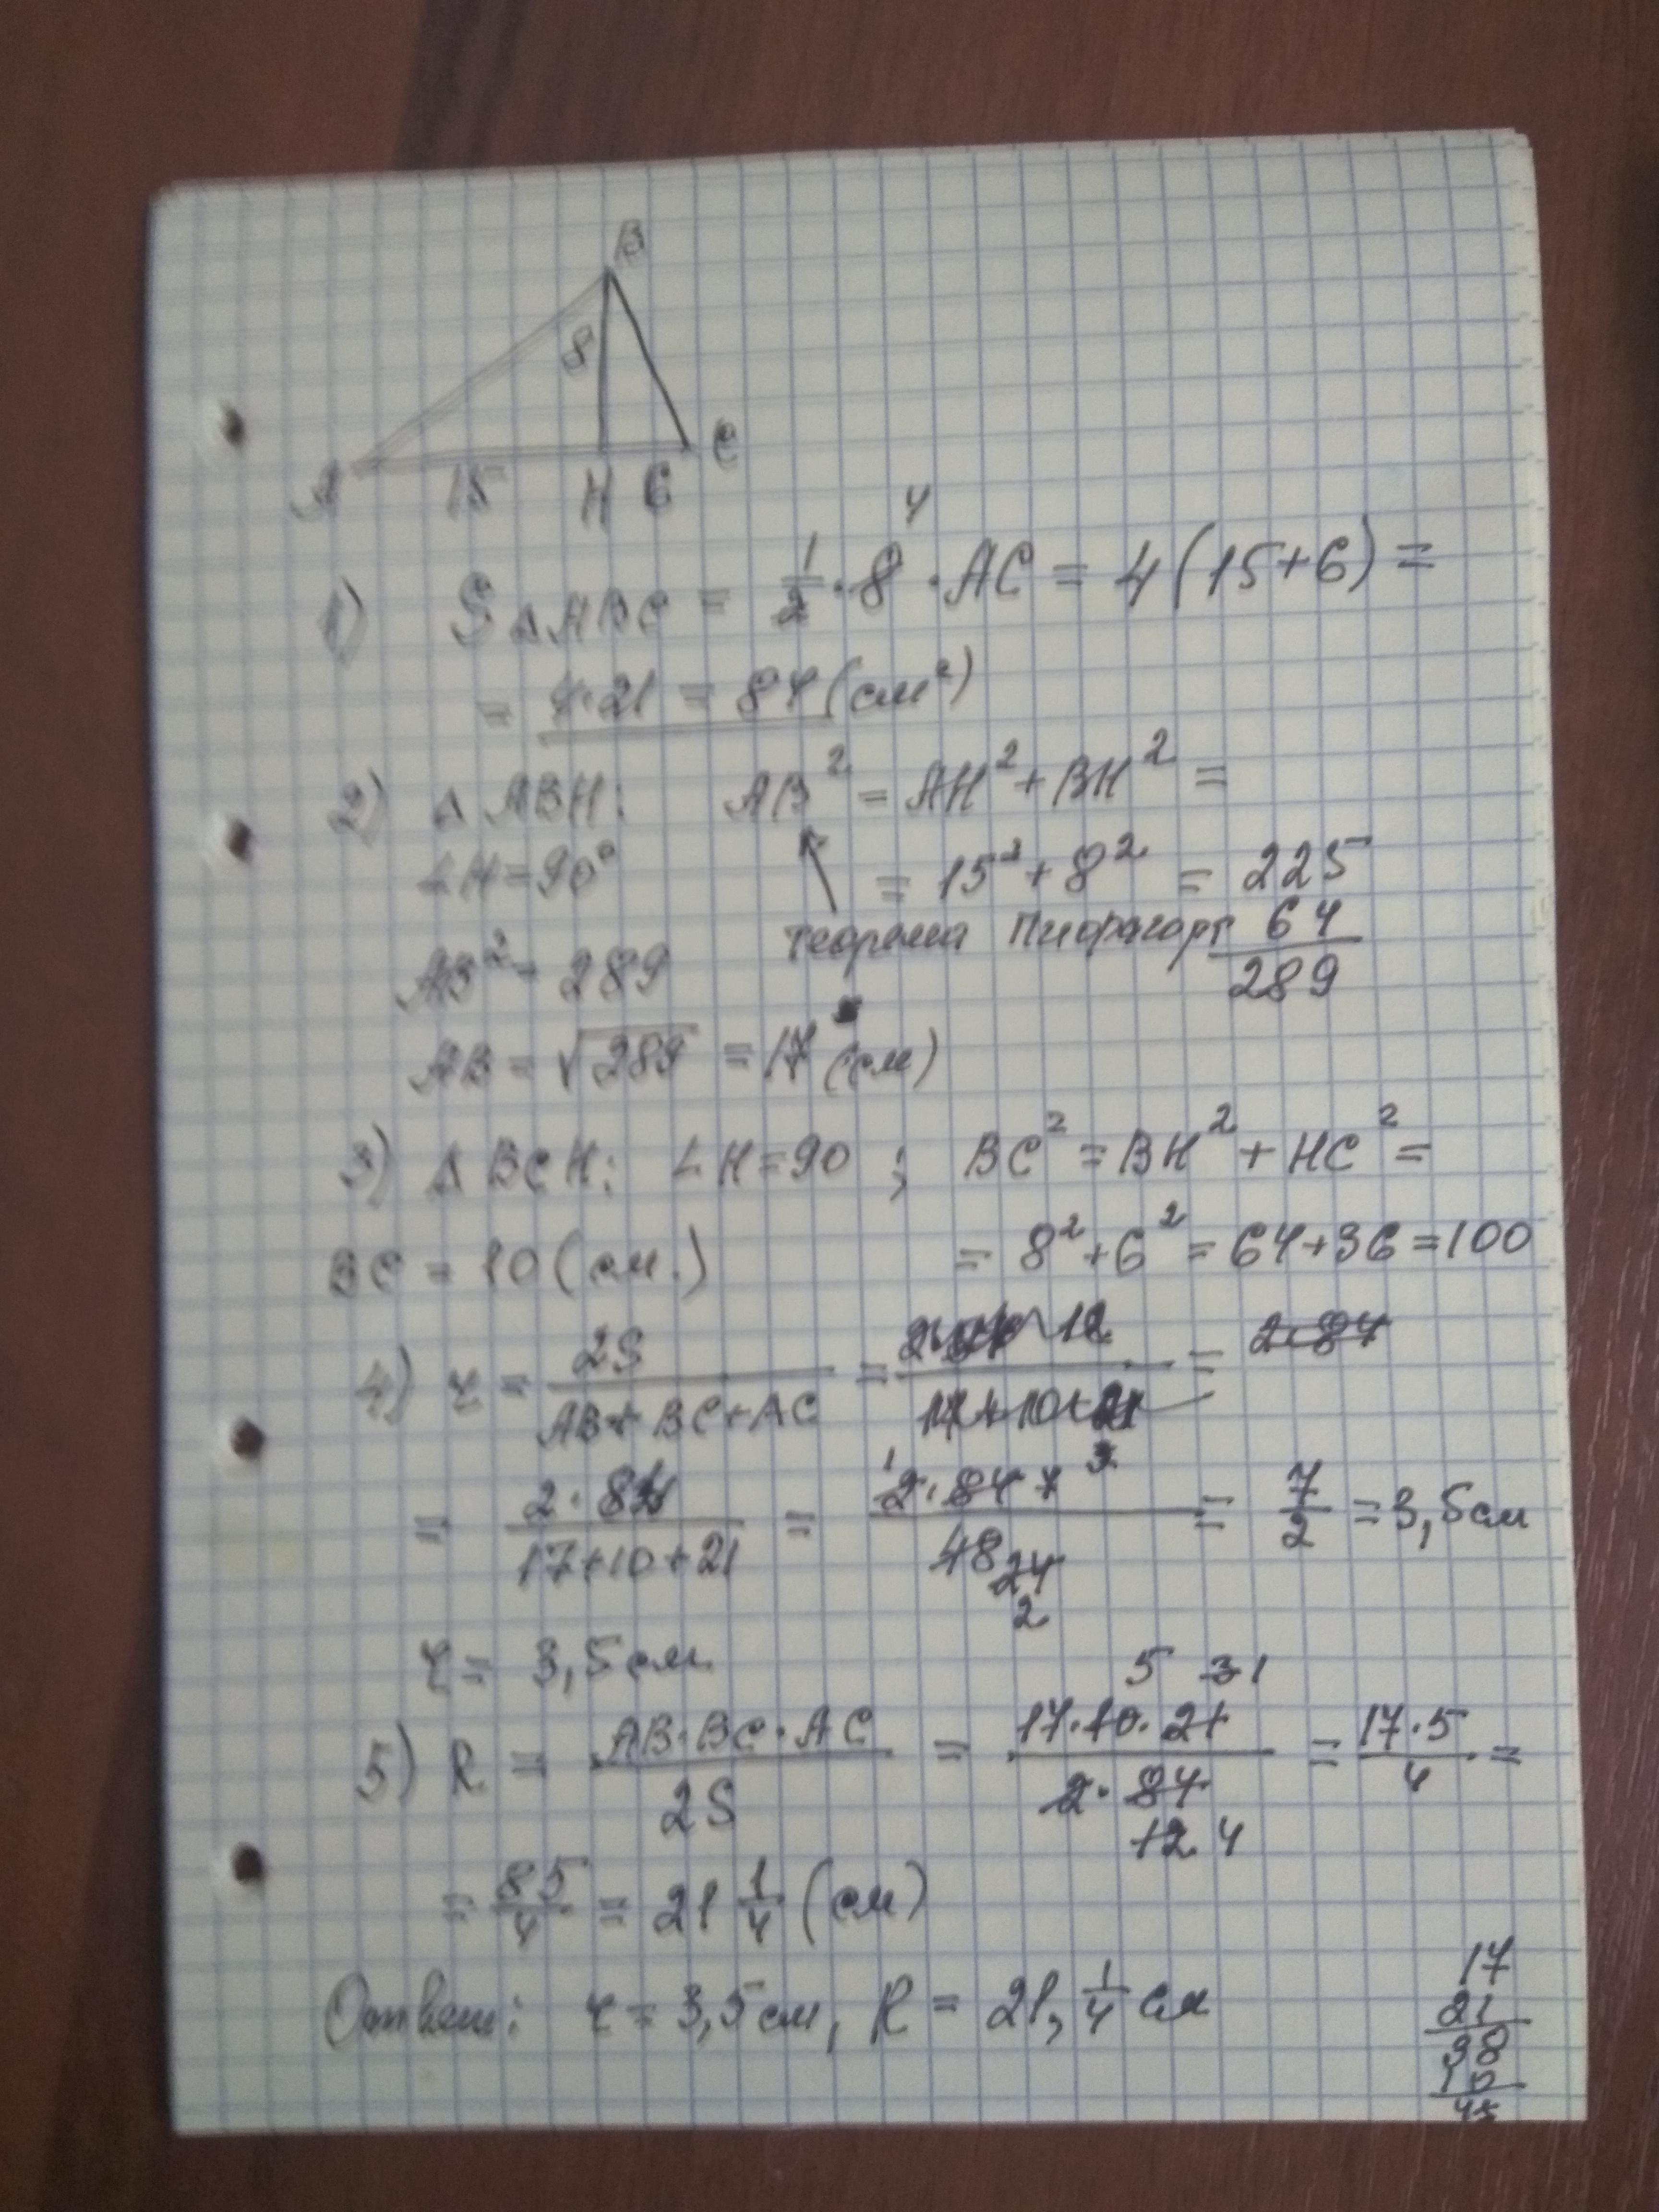 B
8
A 15 H 6 C
4
1) S△ABC = 1/2 · 8 · AC = 4(15+6) =
= 4·21 = 84 (см²)
2) △ABH: AB² = AH² + BH² =
∠H=90° = 15² + 8² = 225
теорема Пифагора 64
AB² = 289 289
AB = √289 = 17 (см)
3) △BCH: ∠H=90 ; BC² = BH² + HC² =
BC = 10 (см.) = 8² + 6² = 64+36 = 100
4) r = 2S / (AB+BC+AC) = / (17+10+21) = 2·84
= 2·84 / (17+10+21) = 2·84 / 48 = 7/2 = 3,5см
1 7
24
2
r = 3,5см
5 3 1
5) R = AB·BC·AC / 2S = 17·10·21 / 2·84 = 17·5 / 4 =
12 4
= 85/4 = 21 1/4 (см)
Ответ: r = 3,5см, R = 21, 1/4 см
17
21
38
10
48